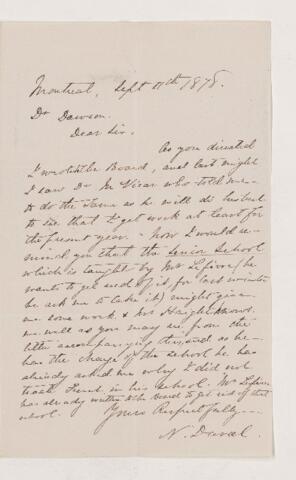 Montreal, Sept 11th 1878.
Dr Dawson.
Dear Sir.
As you directed
I wrote the Board, and last night
I saw Dr McVicar who told me
to do the same as he will do his best
to see that I get work at least for
the present year. Now I would re-
mind you that the Senior School
which is taught by Mr Lefivre (he
wants to get rid of it for last winter
he ask me to take it) might give
me some work & his
me well as you may see from the
letter accompanying this, and as he
has the charge of the school he has
already asked me why I did not
teach in his school. Mr Lefivre
has already written to the board to get rid of that
school.
Yours Respectfully
N. Duval.